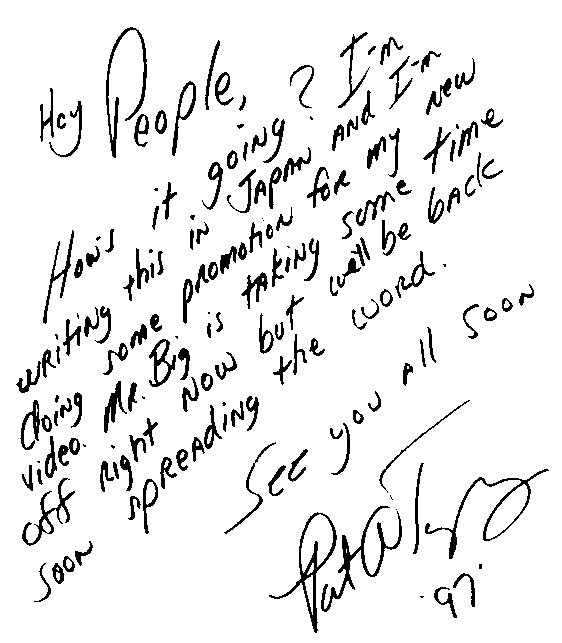 Hey People,
How's it going? I'm
writing this in Japan and I'm
doing some promotion for my new
video. Mr. Big is taking some time
off right now but we'll be back
soon spreading the word.
See you all soon
Pat Torpey
'97'